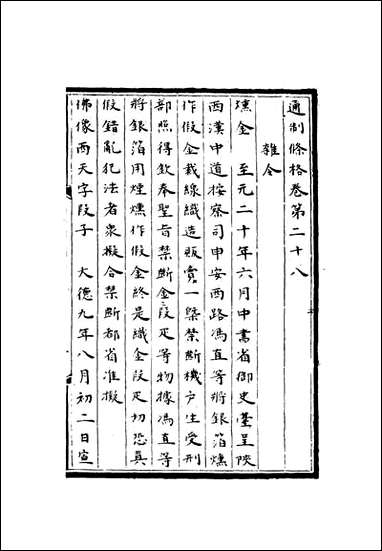 通制條格卷第二十八
雜令
燻金　至元二十年六月中書省御史臺呈陝
西漢中道按察司申安西路馮直等將銀箔燻
作假金裁線織造販賣一槩禁斷機户生受刑
部照得欽奉聖旨禁斷金段疋等物據馮直等
將銀箔用煙燻作假金終是織金段疋切恐真
假錯亂犯法者衆擬合禁斷都省准擬
佛像西天字段子　大德九年八月初二日宣